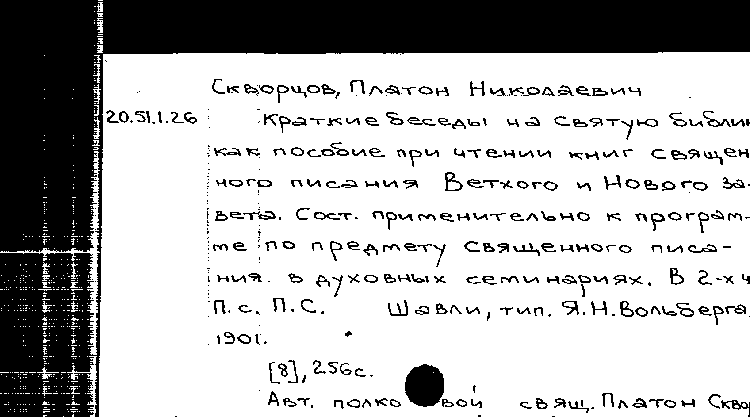 Скворцов, Платон Николаевич
20.51.1.26 Краткие беседы на святую библию
как пособие при чтении книг священ
ного писания Ветхого и Нового за-
вета. Сост. применительно к програм-
ме по предмету священного писа-
ния в духовных семинариях. В 2-х ч
П.с. П.С. Шавли, тип. Я.Н.Вольберга,
1901.
[8], 256с.
Авт. полко вой свящ. Платон Сквор